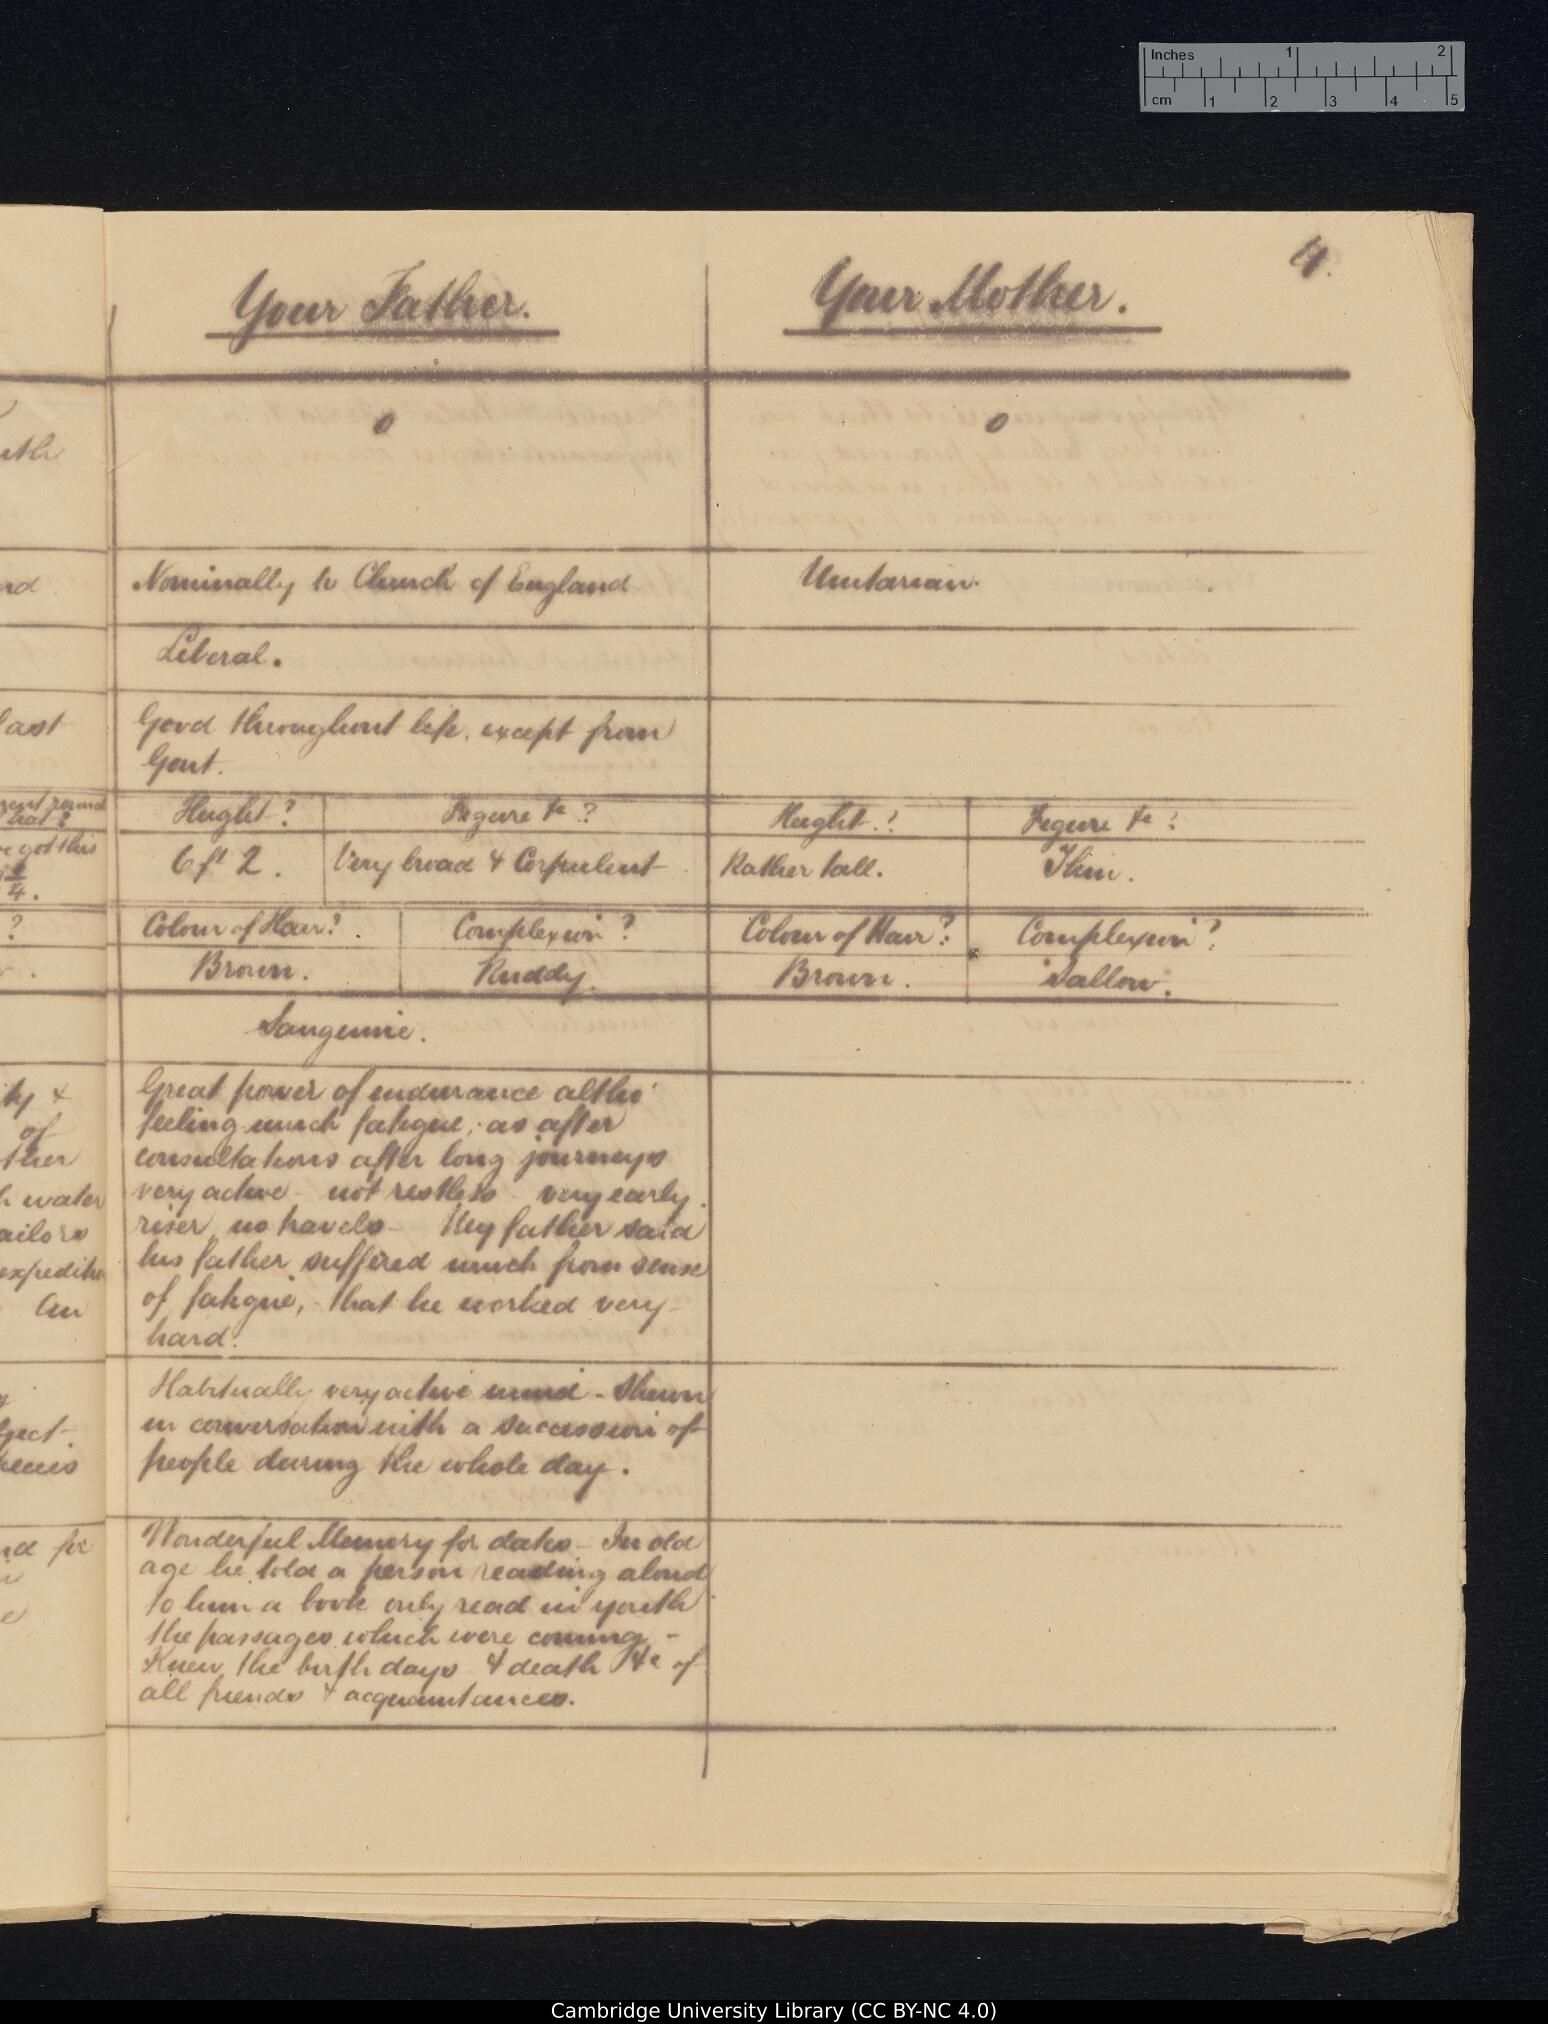 Inches 1 2
cm 1 2 3 4 5
4.
Your Father.
Your Mother.
0
0
Nominally to Church of England
Unitarian.
Liberal.
Good throughout life, except from
Gout.
Height?
Figure &c?
Height?
Figure &c?
6 ft 2.
Very broad & Corpulent
Rather tall.
Thin.
Colour of Hair?
Complexion?
Colour of Hair?
Complexion?
Brown.
Ruddy.
Brown.
Sallow.
Sanguine.
Great power of endurance altho'
feeling much fatigue, as after
consultations after long journeys
very active - not restless - very early
riser, no travels - My father said
his father suffered much from sense
of fatigue, - that he worked very
hard.
Habitually very active mind - shewn
in conversation with a succession of
people during the whole day.
Wonderful Memory for dates - In old
age he told a person reading aloud
to him a book only read in youth
the passages which were coming -
Knew the birth days & death &c of
all friends & acquaintances.
last
hat?
4.
?
of
water
An
for
Cambridge University Library (CC BY-NC 4.0)